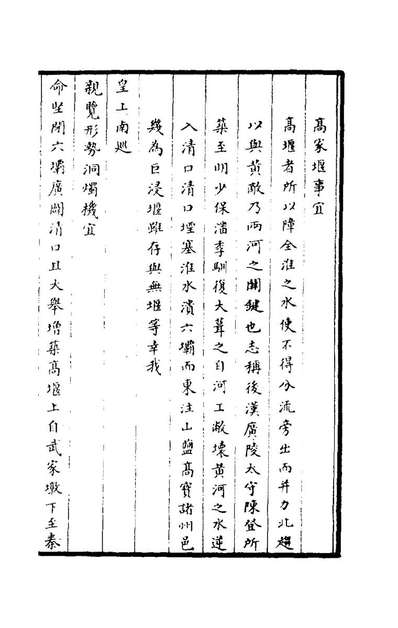 高家堰事宜
高堰者所以障全淮之水使不得分流旁出而并力北趨
以與黃敵乃兩河之關鍵也志稱後漢廣陵太守陳登所
築至明少保潘季馴復大葺之自河工敝壞黃河之水逆
入清口清口堙塞淮水潰六壩而東注山鹽高寶諸州邑
幾為巨浸堰雖存與無堰等幸我
皇上南廵
親覽形勢洞燭機宜
命堅閉六壩廣闢清口且大舉增築高堰上自武家墩下至秦